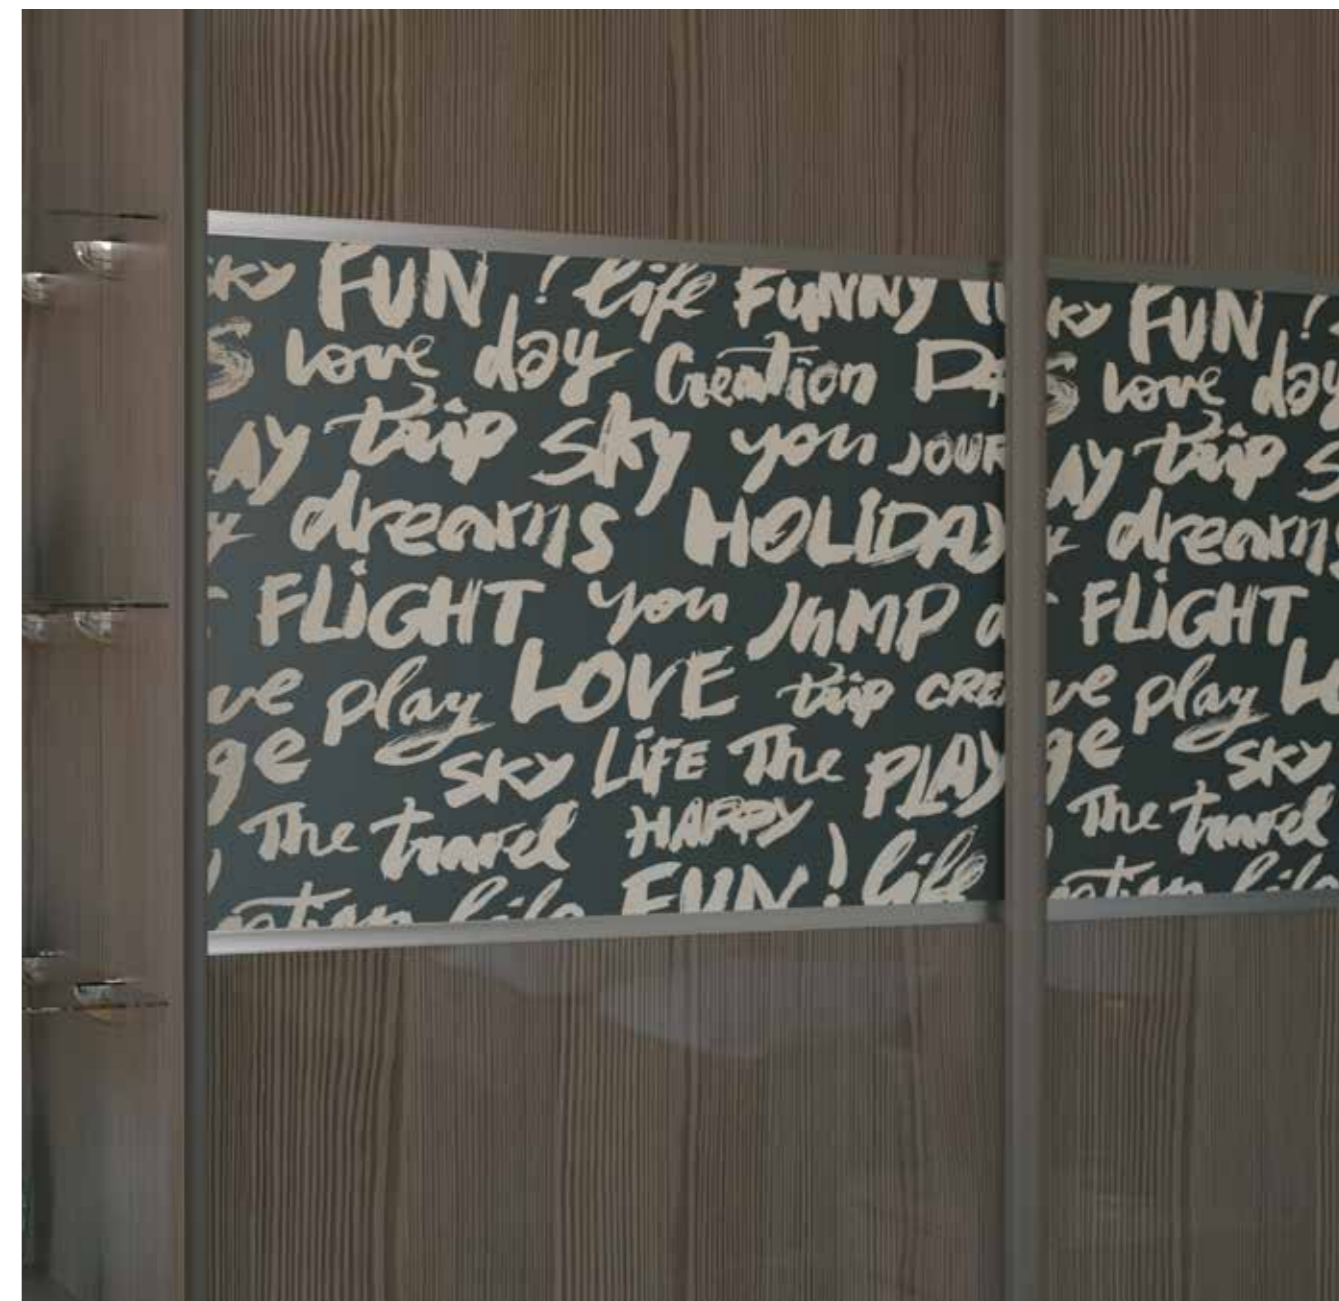 sky FUN! life FUNNY
love day Creation
trip sky you JOUR
dreams HOLIDAY
FLIGHT you JUMP
ve play LOVE trip CREA
ge SKY LIFE The PLAY
The travel HAPPY
life FUN! life
ky FUN!
love day
AY trip
dreams
FLIGHT
ve play
ge SKY
The travel